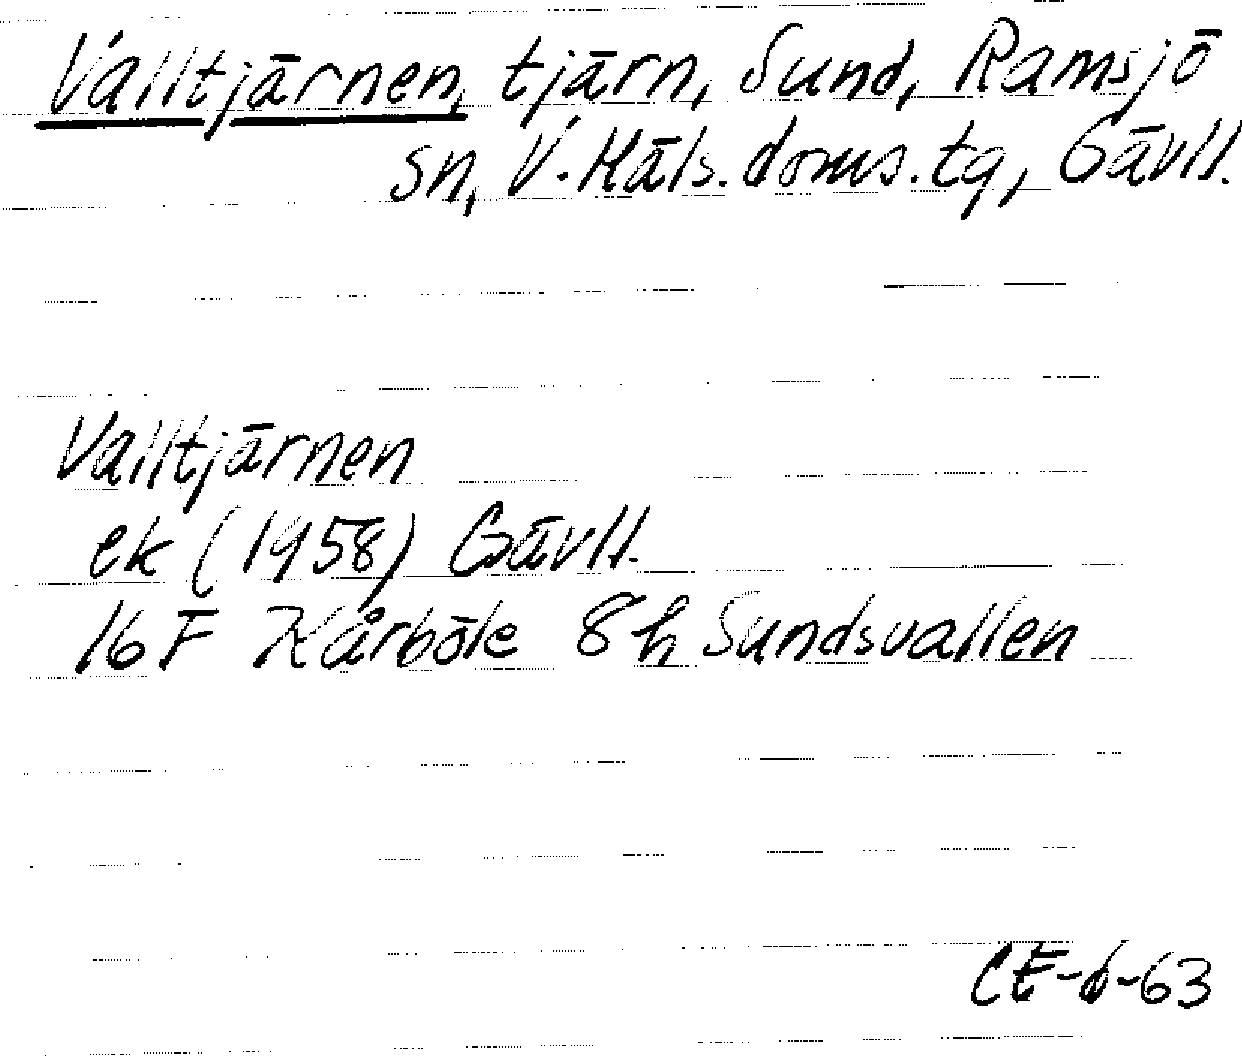 Válltjärnen, tjärn, Sund, Ramsjö
sn, V. Häls. doms. tg, Gävll.
Valltjärnen
ek (1958) Gävll.
16 F Kårböle 8 h Sundsvallen
CE-d-63